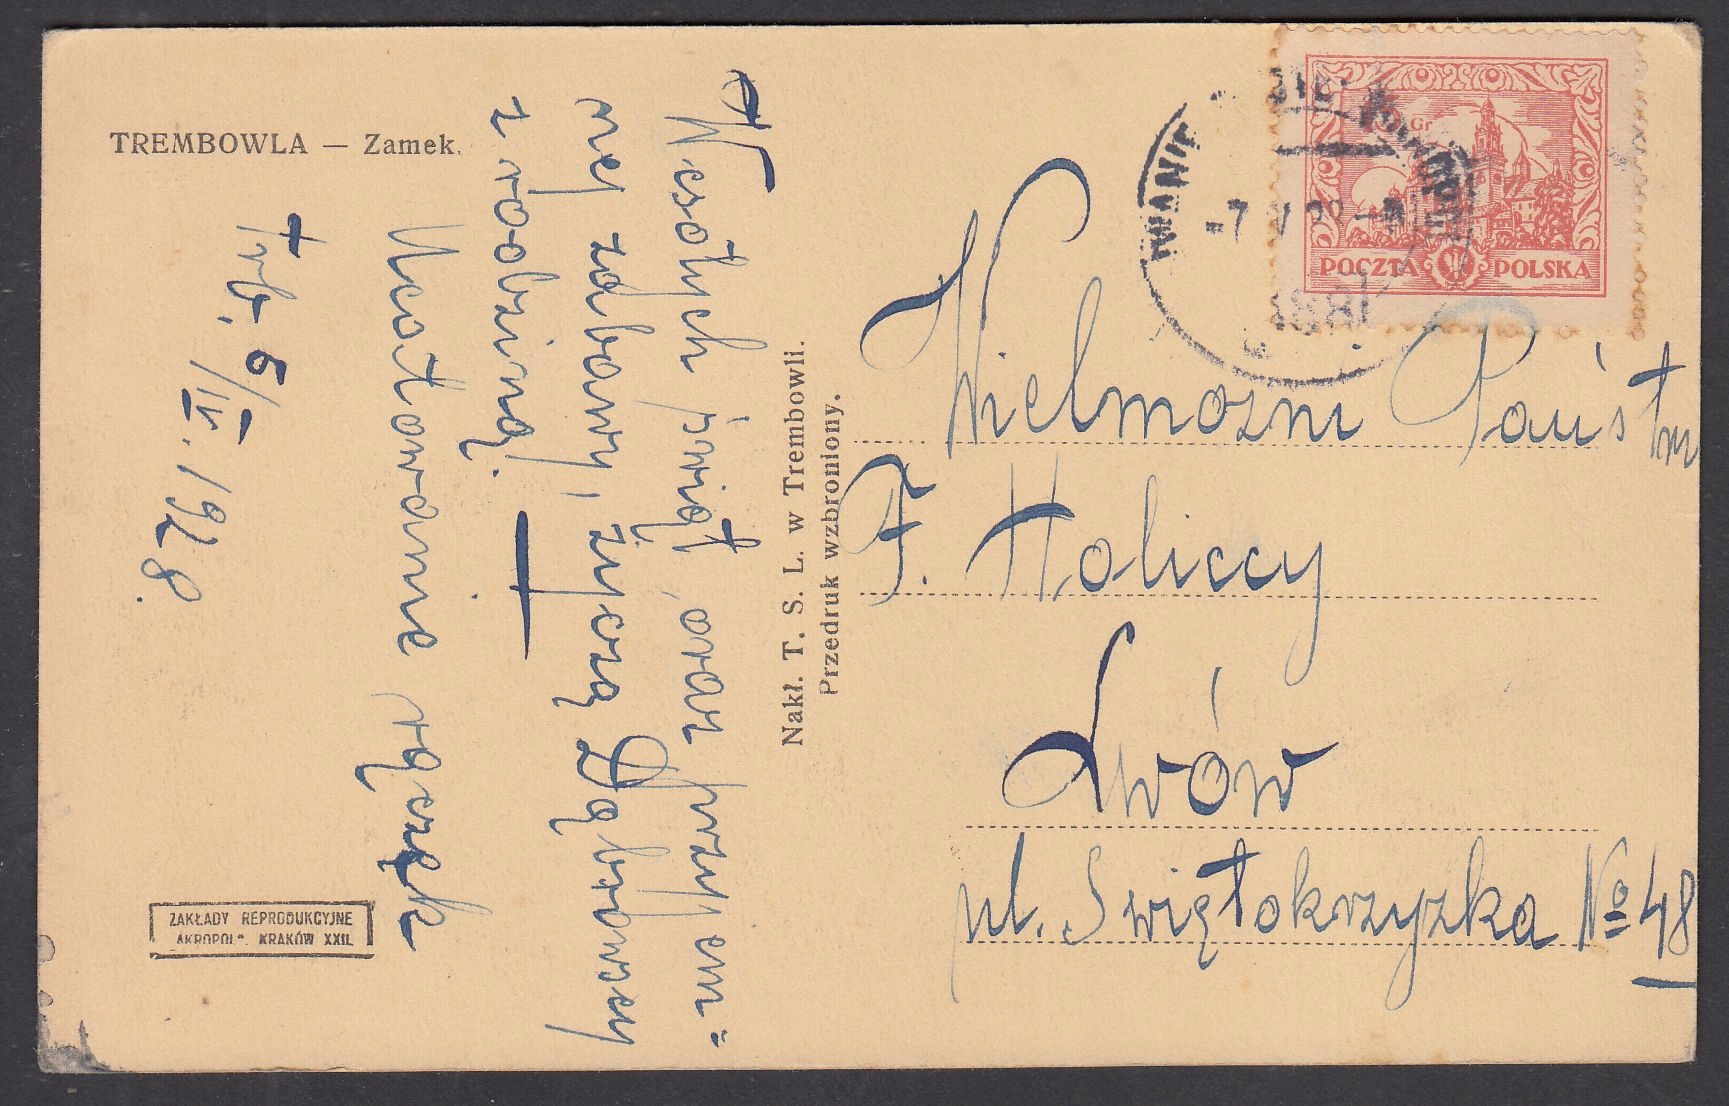 TREMBOWLA — Zamek.
Wesołych świąt, oraz przyjem=
nej zabawy, życzą Dąbrowscy
z rodziną.
Ucałowanie rączek
Trb. 5/IV. 1928.
ZAKŁADY REPRODUKCYJNE
„AKROPOL“. KRAKÓW XXII.
Nakł. T. S. L. w Trembowli.
Przedruk wzbroniony.
Gr
POCZTA POLSKA
-7 V 28
Wielmożni Państw
F. Holiccy
Lwów
ul. Swiętokrzyzka № 48